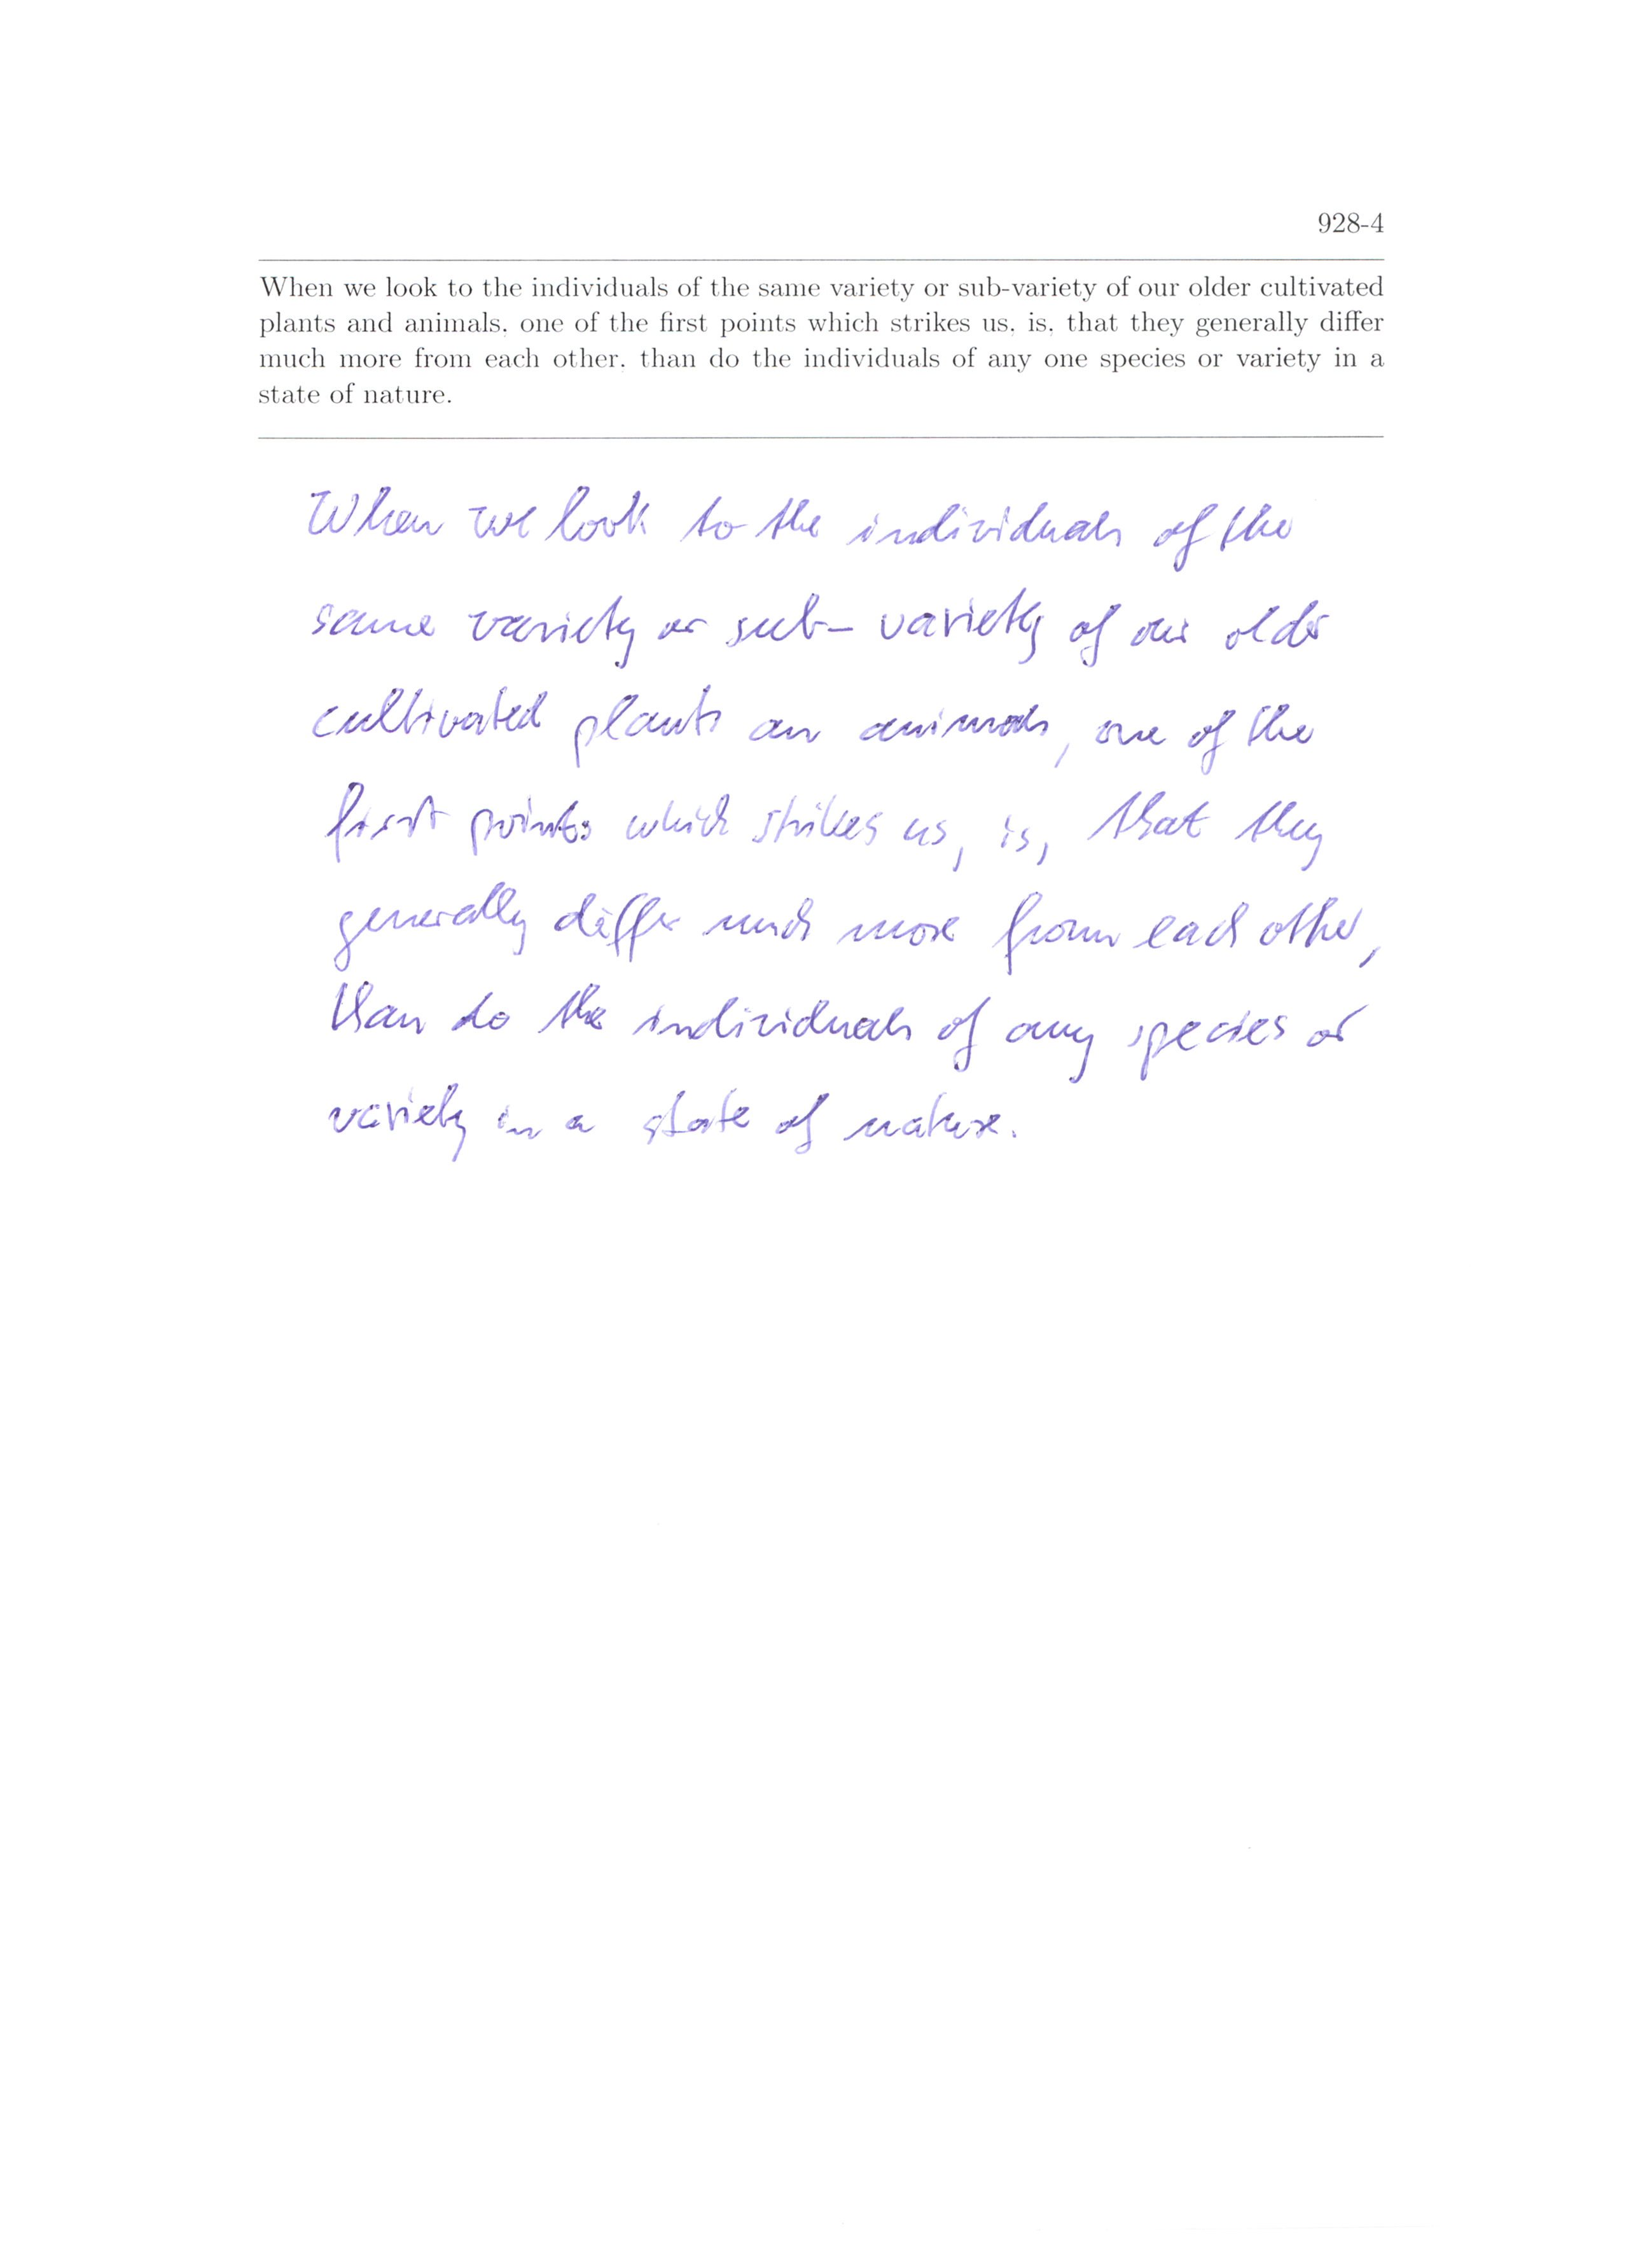 928-4
When we look to the individuals of the same variety or sub-variety of our older cultivated
plants and animals, one of the first points which strikes us, is, that they generally differ
much more from each other, than do the individuals of any one species or variety in a
state of nature.
When we look to the individuals of the
same variety or sub-variety of our older
cultivated plants an animals, one of the
first points which strikes us, is, that they
generally differ much more from each other,
than do the individuals of any species or
variety in a state of nature.